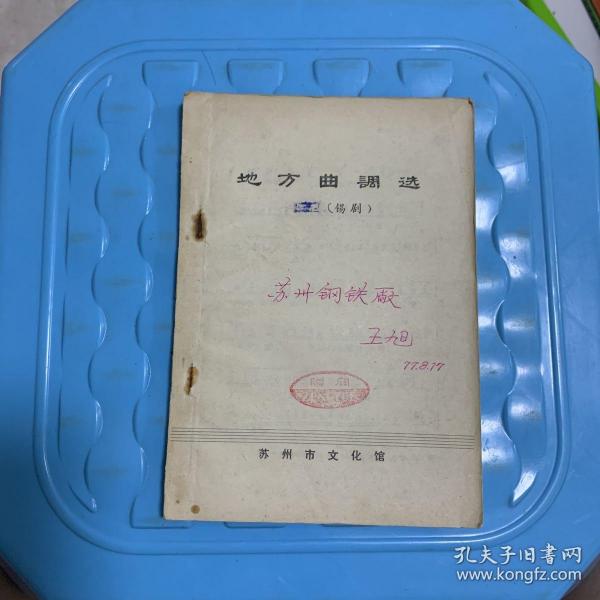 地方曲調选
（锡剧）
苏州钢铁廠
王旭
77.8.17
赠阅
苏州市文化馆
孔夫子旧书网
www.kongfz.com